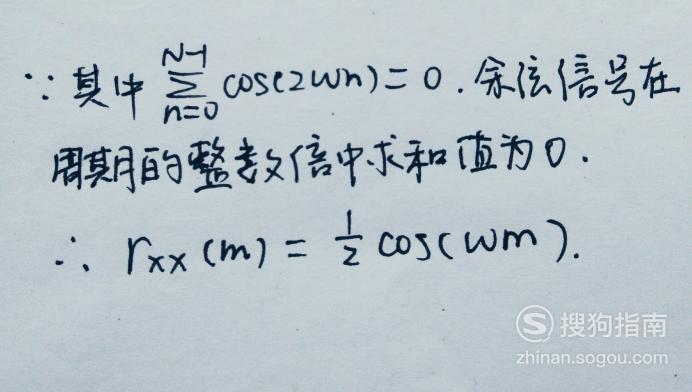 ∵ 其中 \sum_{n=0}^{N-1} cos(2ωn) = 0. 余弦信号在
周期的整数倍中求和值为0.
∴ r_{xx}(m) = \frac{1}{2} cos(ωm).
搜狗指南
zhinan.sogou.com